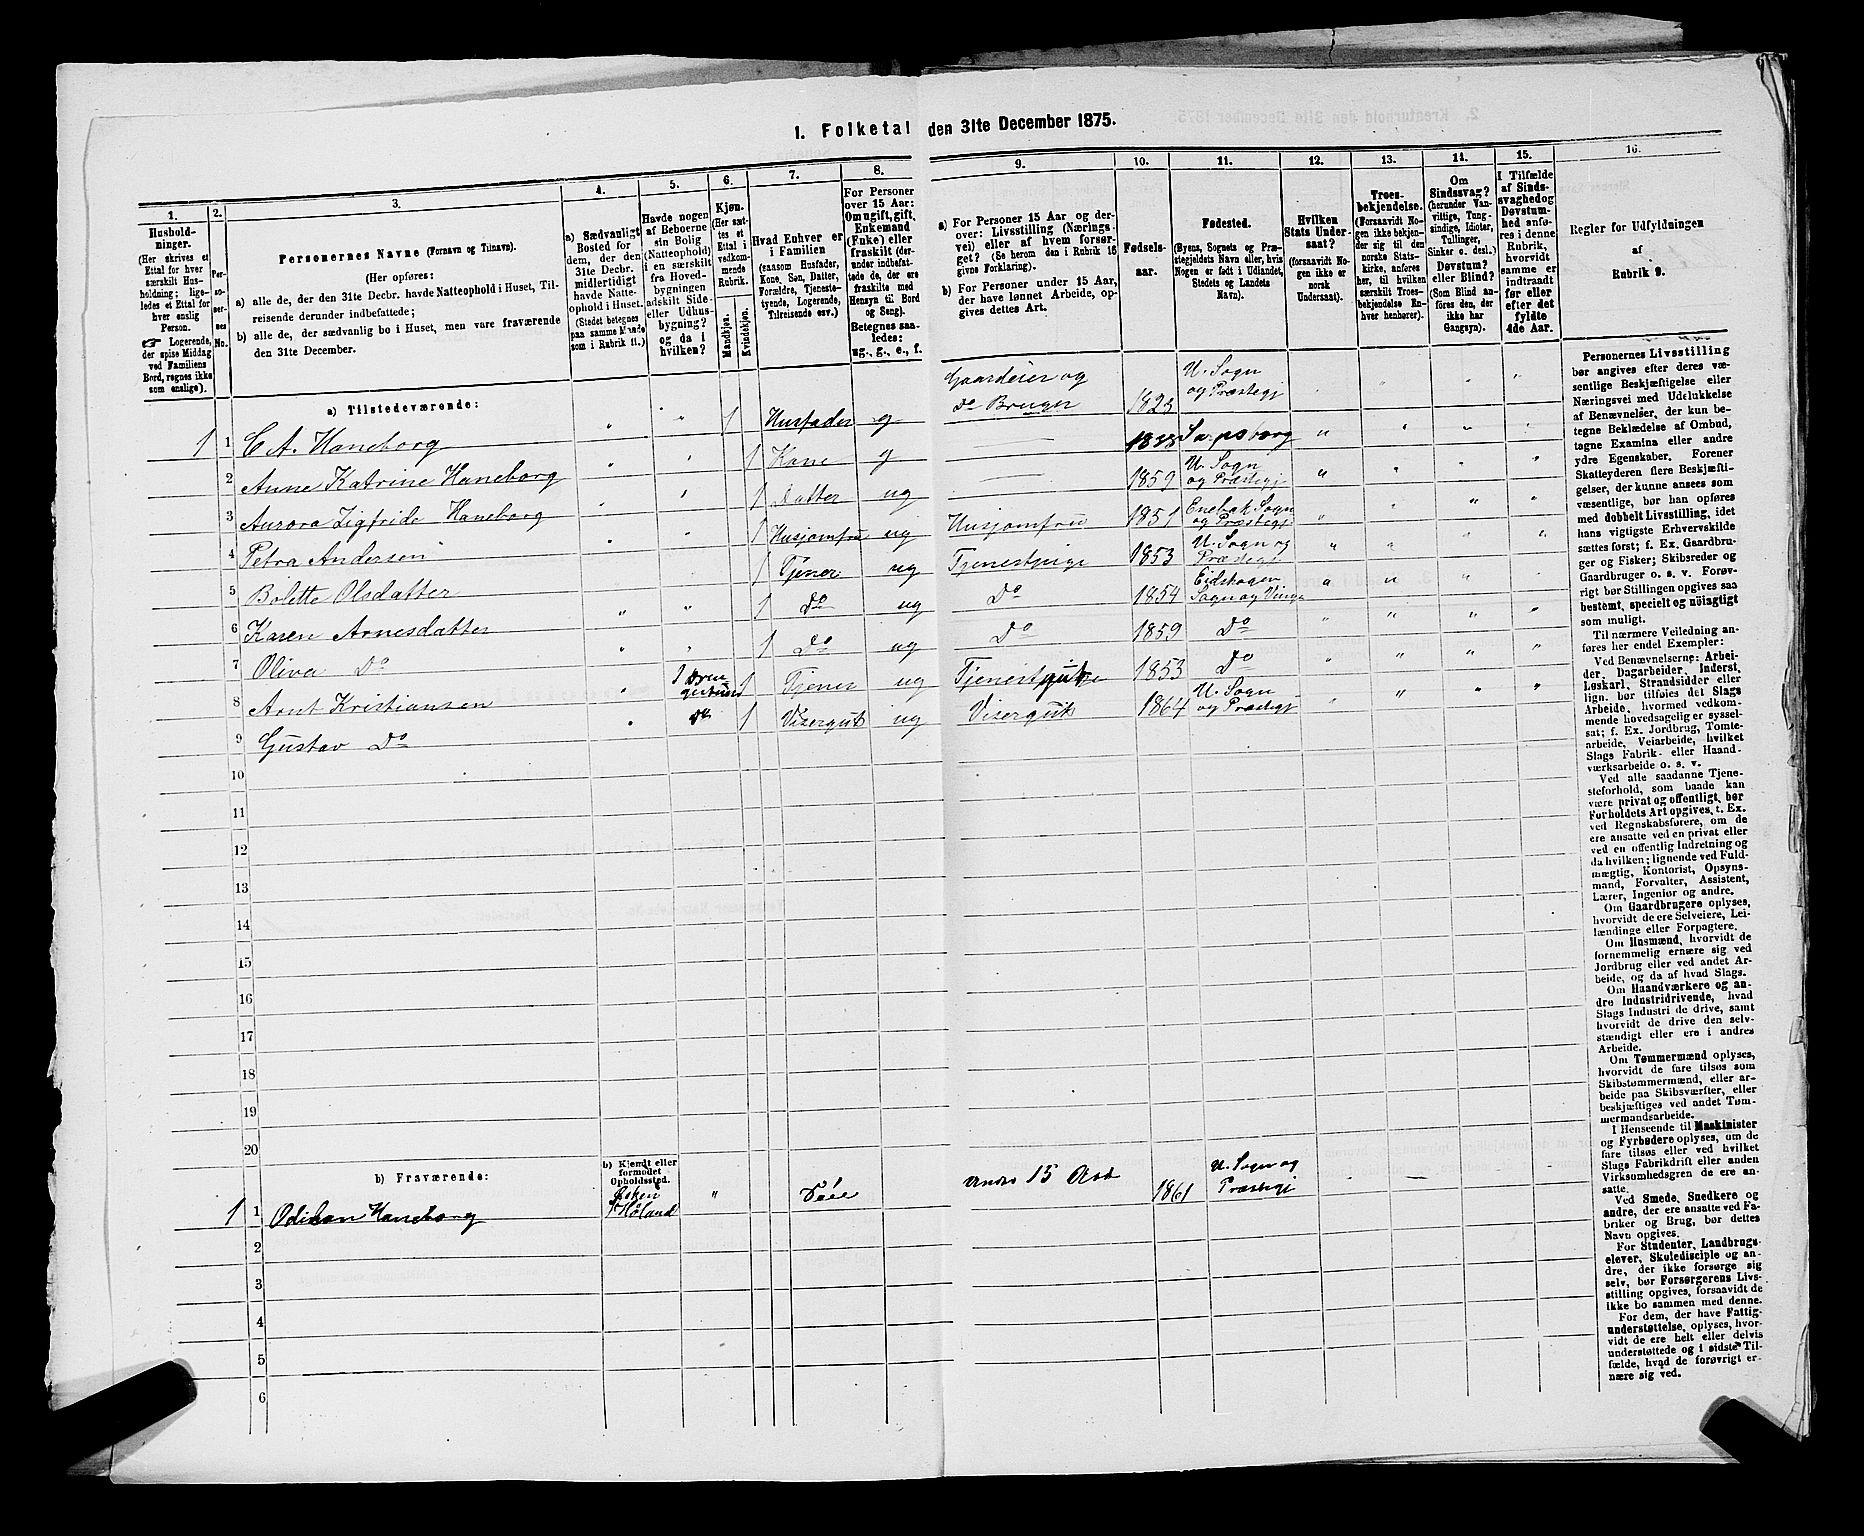 1. Folketal den 31te December 1875.
1.
Hushold-
ninger.
(Her skrives et
Ettal for hver
særskilt Hus-
holdning; lige-
ledes et Ettal for
hver enslig
Person.
☞ Logerende,
der spise Middag
ved Familiens
Bord, regnes ikke
som enslige).
2.
Per-
so-
ner-
nes
No.
3.
Personernes Navne (Fornavn og Tilnavn).
(Her opføres:
a) alle de, der den 31te Decbr. havde Natteophold i Huset, Til-
reisende derunder indbefattede;
b) alle de, der sædvanlig bo i Huset, men vare fraværende
den 31te December.
4.
a) Sædvanligt
Bosted for
dem, der den
31te Decbr.
midlertidigt
havde Natte-
ophold i Huset.
(Stedet betegnes
paa samme Maade
som i Rubrik 11.)
5.
Havde nogen
af Beboerne
sin Bolig
(Natteophold)
i en særskilt
fra Hoved-
bygningen
adskilt Side-
eller Udhus-
bygning?
og da i
hvilken?
6.
Kjøn.
(Her sæt-
tes et
Ettal i
vedkom-
mende
Rubrik.
Mandkjøn.
Kvindekjøn.
7.
Hvad Enhver er
i Familien
(saasom Husfader,
Kone, Søn, Datter,
Forældre, Tjeneste-
tyende, Logerende,
Tilreisende osv.)
8.
For Personer
over 15 Aar:
Om ugift, gift,
Enkemand
(Enke) eller
fraskilt (der-
under indbefat-
tede de, der ere
fraskilte med
Hensyn til Bord
og Seng).
Betegnes saa-
ledes:
ug., g., e., f.
9.
a) For Personer 15 Aar og der-
over: Livsstilling (Nærings-
vei) eller af hvem forsør-
get. (Se herom den i Rubrik 16
givne Forklaring).
b) For Personer under 15 Aar,
der have lønnet Arbeide, op-
gives dettes Art.
10.
Fødsels-
aar.
11.
Fødested.
(Byens, Sognets og Præ-
stegjeldets Navn eller, hvis
Nogen er født i Udlandet,
Stedets og Landets
Navn).
12.
Hvilken
Stats Under-
saat?
(forsaavidt No-
gen ikke er
norsk
Undersaat).
13.
Troes-
bekjendelse.
(Forsaavidt No-
gen ikke bekjen-
der sig til den
norske Stats-
kirke, anføres
her, til hvilken
særskilt Troes-
bekjendelse En-
hver henhører).
14.
Om
Sindssvag?
(herunder Van-
vittige, Tung-
sindige, Idioter,
Tullinger,
Sinker o. desl.)
Døvstum?
eller Blind?
(Som Blind an-
føres den, der
ikke har
Gangsyn).
15.
I Tilfælde
af Sinds-
svaghed og
Døvstum-
hed anfø-
res i denne
Rubrik,
hvorvidt
samme er
indtraadt
før eller
efter det
fyldte
4de Aar.
16.
Regler for Udfyldningen
af
Rubrik 9.
a) Tilstedeværende:
1 1 C A. Haneborg " " 1 Husfader g Gaardeier og do Bruger 1823 U. Sogn og Præstegj
2 Anne Katrine Haneborg " " 1 Kone g — 1833 Sarpsborg "
3 Aurora Zigfride Haneborg " " 1 Datter ug — 1859 U. Sogn og Præstegj "
4 Petra Andersen " " 1 Husjomfru ug Husjomfru 1851 Enebak Sogn og Præstegj "
5 Bolette Olsdatter 1 Tjener ug Tjenestpige 1853 U. Sogn og Præstegj "
6 Karen Arnesdatter " " 1 Do ug Do 1854 Eidskogen Sogn og Vinge "
7 Oliva Do " " 1 Do ug Do 1859 Do "
8 Arnt Kristiansen " 1 1 Tjener ug Tjenestgut 1853 Do "
9 Gustav Do " do 1 Visergut ug Visergut 1864 U. Sogn og Præstegj "
10
11
12
13
14
15
16
17
18
19
20
b) Fraværende:
b) Kjendt eller
formodet
Opholdssted.
1 1 Haneborg Høland " under 15 Aar 1861 U. Sogn og Præstegj
2
3
4
5
6
Personernes Livsstilling
bør angives efter deres væ-
sentlige Beskjæftigelse eller
Næringsvei med Udelukkelse
af Benævnelser, der kun be-
tegne Beklædelse af Ombud,
tagne Examina eller andre
ydre Egenskaber. Forener
Skatteyderen flere Beskjæfti-
gelser, der kunne ansees som
væsentlige, bør han opføres
med dobbelt Livsstilling, idet
hans vigtigste Erhvervskilde
sættes først; f. Ex. Gaardbru-
ger og Fisker; Skibsreder og
Gaardbruger o. s. v. Forøv-
rigt bør Stillingen opgives saa
bestemt, specielt og nöiagtigt
som muligt.
Til nærmere Veiledning an-
føres her endel Exempler:
Ved Benævnelserne: Arbei-
der, Dagarbeider, Inderst,
Løskarl, Strandsidder eller
lign. bør tilføies det Slags
Arbeide, hvormed vedkom-
mende hovedsagelig er syssel-
sat; f. Ex. Jordbrug, Tomte-
arbeide, Veiarbeide, hvilket
Slags Fabrik- eller Haand-
værksarbeide o. s. v.
Ved alle saadanne Tjene-
steforhold, som baade kan
være privat og offentligt, bør
Forholdets Art opgives, t. Ex.
ved Regnskabsførere, om de
ere ansatte ved en privat eller
ved en offentlig Indretning og
da hvilken; lignende ved Fuld-
mægtig, Kontorist, Opsyns-
mand, Forvalter, Assistent,
Lærer, Ingeniør og andre.
Om Gaardbrugere oplyses,
hvorvidt de ere Selveiere, Lei-
lændinge eller Forpagtere.
Om Husmænd, hvorvidt de
fornemmelig ernære sig ved
Jordbrug eller ved andet Ar-
beide, og da af hvad Slags.
Om Haandværkere og an-
dre Industridrivende, hvad
Slags Industri de drive, samt
hvorvidt de drive den selv-
stændigt eller ere i andres
Arbeide.
Om Tømmermænd oplyses,
hvorvidt de fare tilsøs som
Skibstømmermænd, eller ar-
beide paa Skibsværfter, eller
beskjæftiges ved andet Tøm-
mermandsarbeide.
I Henseende til Maskinister
og Fyrbødere oplyses, om de
fare tilsøs eller ved hvilket
Slags Fabrikdrift eller anden
Virksomhedsgren de ere an-
satte.
Ved Smede, Snedkere og
andre, der ere ansatte ved Fa-
briker og Brug, bør dettes
Navn opgives.
For Studenter, Landbrugs-
elever, Skoledisciple og an-
dre, der ikke forsørge sig
selv, bør Forsørgerens Livs-
stilling opgives, forsaavidt de
ikke bo sammen med denne.
For dem, der have Fattig-
understøttelse, oplyses, hvor-
vidt de ere helt eller delvis
understøttede og i sidste Til-
fælde, hvad de forøvrigt er-
nære sig ved.